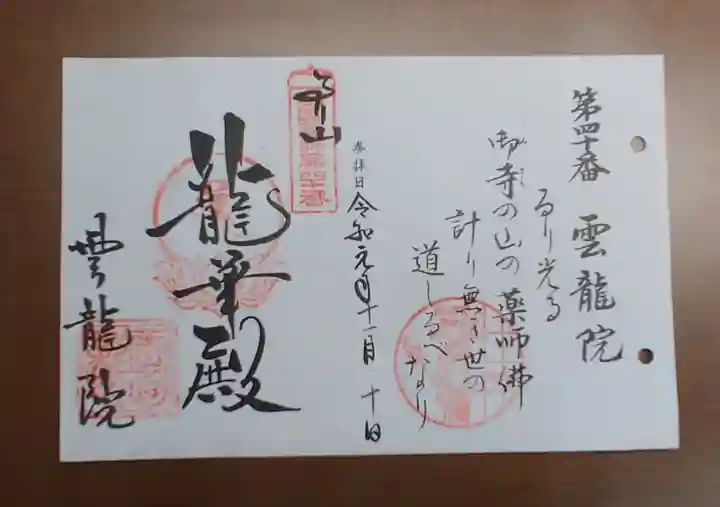 第四十番 雲龍院
るり光る
御寺の山の薬師佛
計り無き世の
道しるべなり
参拝日 令和元年十一月十日
龍華殿
雲龍院